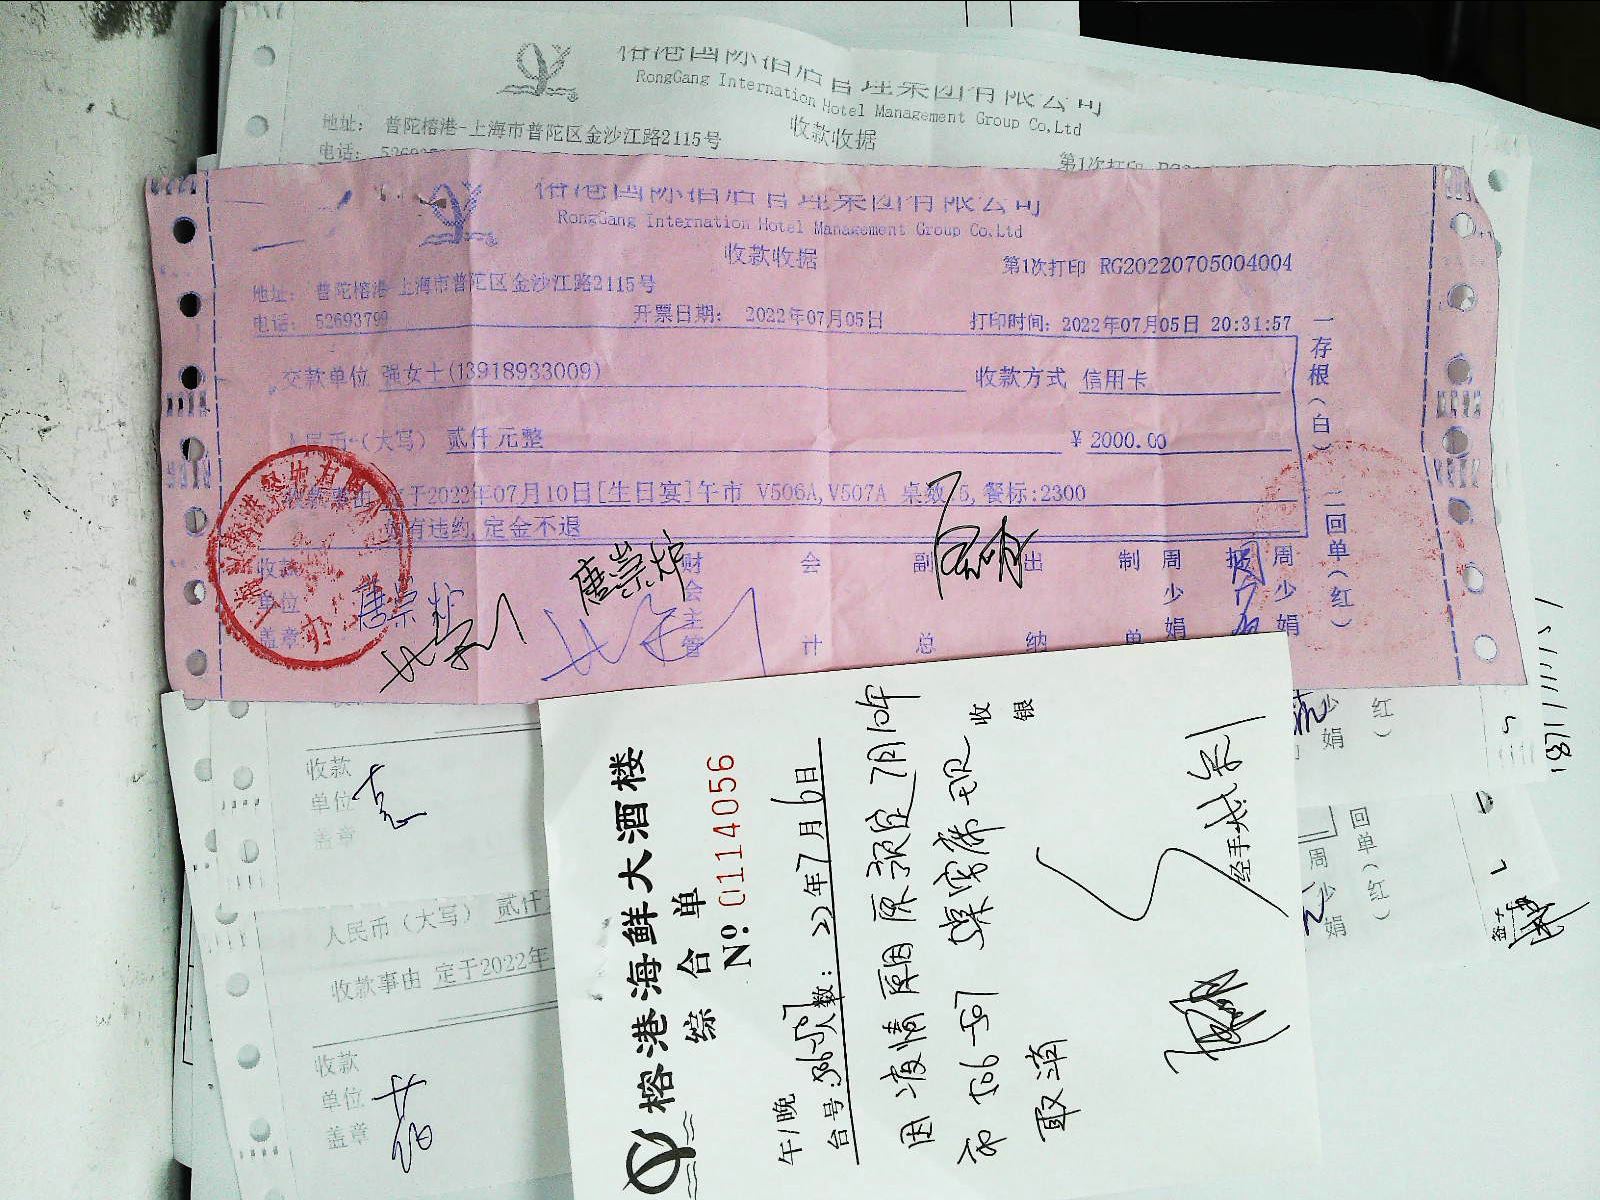 RongGang International Hotel Management Group Co,Ltd
地址： 普陀榕港-上海市普陀区金沙江路2115号
收款收据
电话：
第1次打印
榕港国际酒店管理集团有限公司
RongGang International Hotel Management Group Co.Ltd
收款收据
第1次打印 RG20220705004004
地址： 普陀榕港-上海市普陀区金沙江路2115号
电话： 52693799
开票日期： 2022年07月05日
打印时间：2022年07月05日 20:31:57
交款单位 强女士(13918933009)
收款方式 信用卡
人民币（大写） 贰仟元整
¥ 2000.00
收款事由 定于2022年07月10日[生日宴]午市 V506A,V507A 桌数:5,餐标:2300
如有违约,定金不退
收款单位盖章
唐崇炉
唐崇炉
财会主管
会计
副总
出纳
制单
周少娟
周少娟
一存根（白）
二回单（红）
收款
单位
盖章
人民币（大写） 贰仟
收款事由 定于2022年
收款
单位
盖章
娟
（红）
周少娟
回单（红）
榕港海鲜大酒楼
综合单
Nº: 0114056
午/晚
22年7月6日
台号: 506-507 人数:
因疫情原因原预定7月10午
市506-507 宴席现
取消
收银
经手